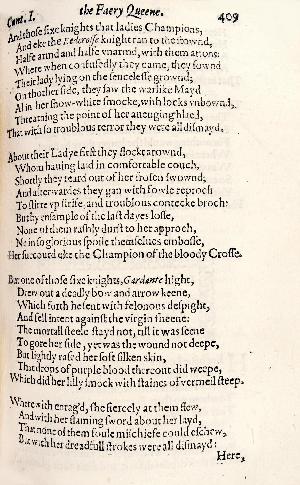 Cant. I. the Faery Queene. 409
And those sixe knights that ladies Champions,
And eke the Redcrosse knight ran to the stownd,
Halfe armd and halfe vnarmd, with them attons:
Where when confusedly they came, they fownd
Their lady lying on the sencelesse grownd;
On thother side, they saw the warlike Mayd
Al in her snow-white smocke, with locks vnbownd,
Threatning the point of her auenging blaed,
That with so troublous terror they were all dismayd.
About their Ladye first they flockt arownd,
Whom hauing laid in comfortable couch,
Shortly they reard out of her frosen swownd;
And afterwardes they gan with fowle reproch
To stirre vp strife, and troublous contecke broch:
But by ensample of the last dayes losse,
None of them rashly durst to her approch,
Ne in so glorious spoile themselues embosse,
Her succourd eke the Champion of the bloody Crosse.
But one of those sixe knights, Gardante hight,
Drew out a deadly bow and arrow keene,
Which forth he sent with felonous despight,
And fell intent against the virgin sheene:
The mortall steele stayd not, till it was seene
To gore her side, yet was the wound not deepe,
But lightly rased her soft silken skin,
That drops of purple blood thereout did weepe,
Which did her lilly smock with staines of vermeil steep.
Wherewith enrag'd, she fiercely at them flew,
And with her flaming sword about her layd,
That none of them foule mischiefe could eschew,
But with her dreadfull strokes were all dismayd:
Here,